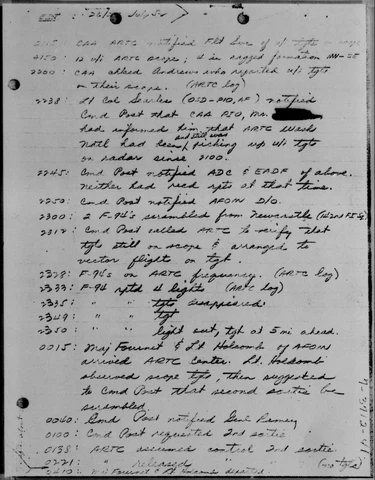 EDT 26/27 July 52
2115 CAA ARTC notified Flt Svc of u/i tgts on scope
2150: 12 u/i ARTC scope; 4 in ragged formation
2200: CAA called Andrews who reported u/i tgts
on their scope. (ARTC log)
2238: Lt Col Searles (OSD-PIO, AF) notified
Cmd Post that CAA PIO, Mr.
had informed him that ARTC Wash
and still was
Natl had been picking up u/i tgts
on radar since 2100.
2245: Cmd Post notified ADC & EADF of above.
Neither had recd rpts at that time.
2250: Cmd Post notified AFOIN D/O.
2300: 2 F-94's scrambled from Newcastle
2312: Cmd Post called ARTC to verify that
tgts still on scope & arranged to
vector flights on tgt.
2328: F-94's on ARTC frequency. (ARTC log)
2333: F-94 rptd 4 lights (ARTC log)
2335: " " tgts disappeared.
2349: " " tgt
2350: " " light out, tgt at 5 mi ahead.
0015: Maj Fournet & Lt Holcomb of AFOIN
arrived ARTC Center. Lt. Holcomb
observed scope tgts, then suggested
to Cmd Post that second sortie be
scrambled.
0040: Cmd Post notified Genl Ramey
0100: Cmd Post requested 2nd sortie
0138: ARTC assumed control 2nd sortie.
0221: " released " " (no tgts)
0410: Maj Fournet & Lt Holcomb departed.